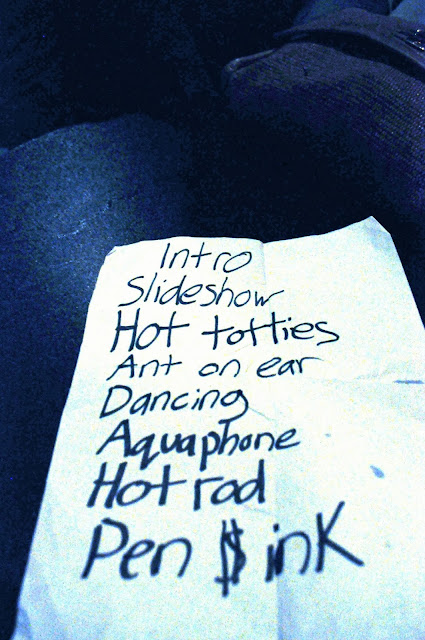 Intro
Slideshow
Hot totties
Ant on ear
Dancing
Aquaphone
Hot rod
Pen $ ink